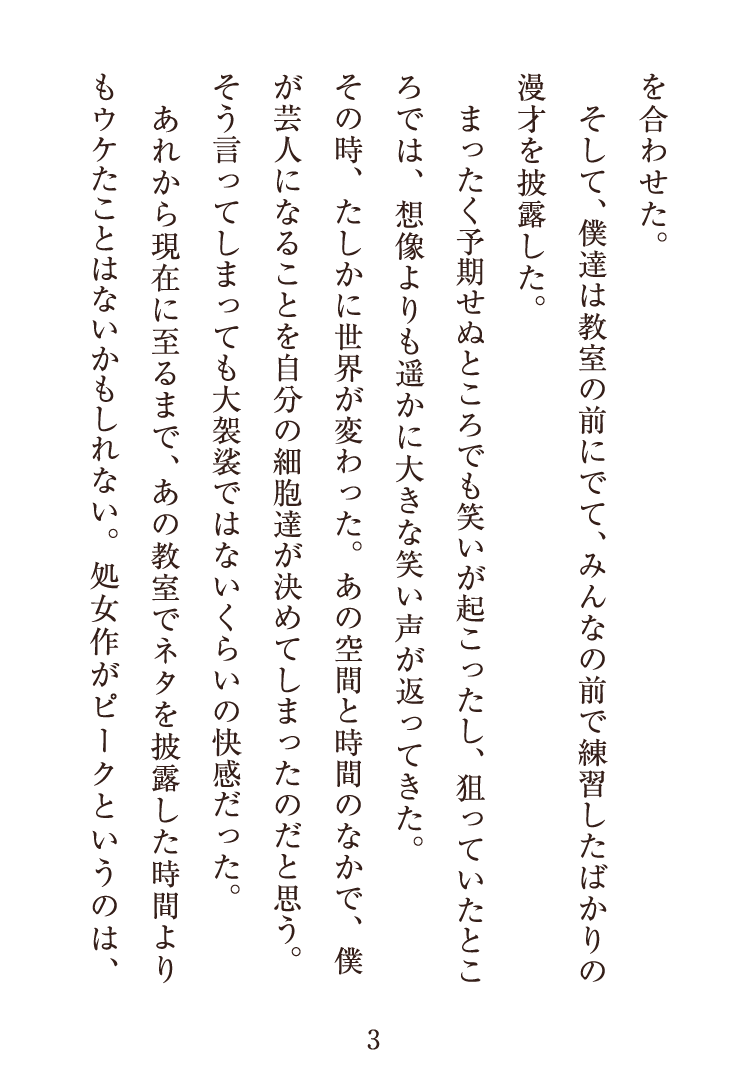 を合わせた。
　そして、僕達は教室の前にでて、みんなの前で練習したばかりの
漫才を披露した。
　まったく予期せぬところでも笑いが起こったし、狙っていたとこ
ろでは、想像よりも遥かに大きな笑い声が返ってきた。
その時、たしかに世界が変わった。あの空間と時間のなかで、僕
が芸人になることを自分の細胞達が決めてしまったのだと思う。
そう言ってしまっても大袈裟ではないくらいの快感だった。
　あれから現在に至るまで、あの教室でネタを披露した時間より
もウケたことはないかもしれない。処女作がピークというのは、
3